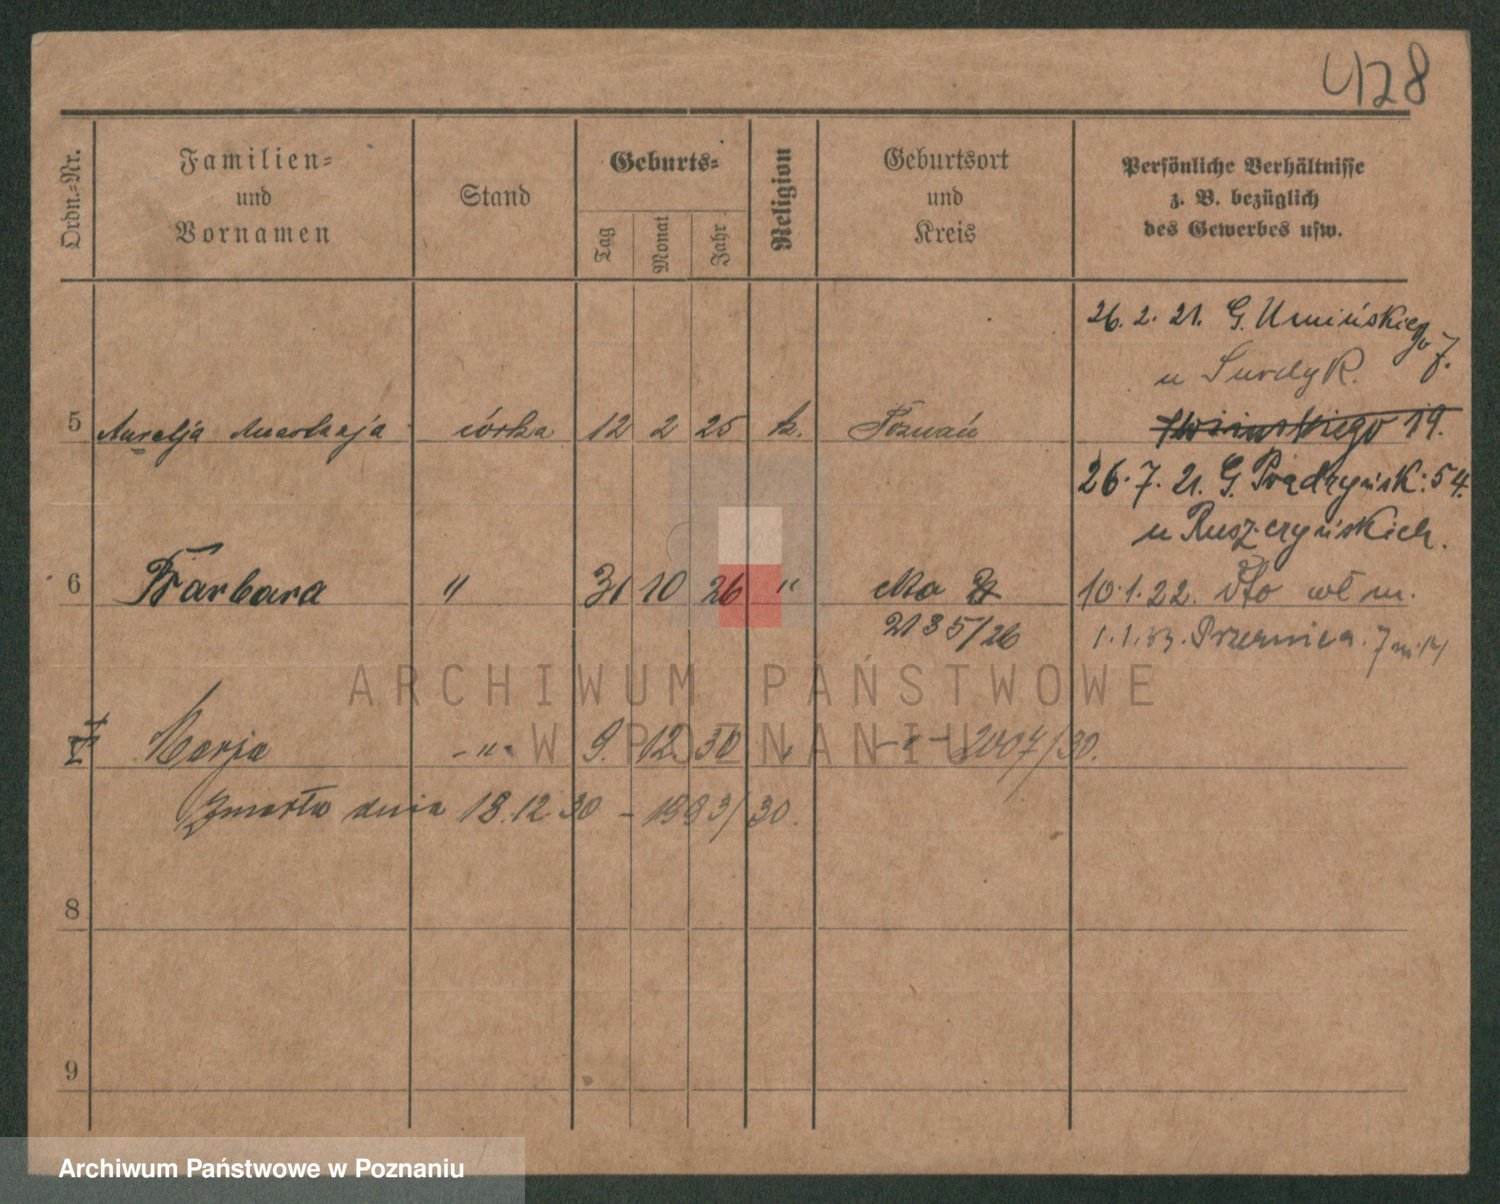 428
Ordn.-Nr.
Familien-
und
Vornamen
Stand
Geburts-
Tag
Monat
Jahr
Religion
Geburtsort
und
Kreis
Persönliche Verhältnisse
z. B. bezüglich
des Gewerbes usw.
26. 2. 21. G. Umińskiego 7.
u Surdyk.
5 Aurelja córka 12 2 25 k. Poznań
19.
26. 7. 21. G. Prądzyńsk: 54.
u Ruszczyńskich.
6 Barbara " 31 10 26 "
2135/26
10.1.22. dto wł m.
1.1. Przemica. 7 m. 14
Marja -"- 9. 12 30 " -"- 2007/30.
Zmarła dnia 18.12.30 - 1993/30.
8
9
ARCHIWUM PAŃSTWOWE
W POZNANIU
Archiwum Państwowe w Poznaniu